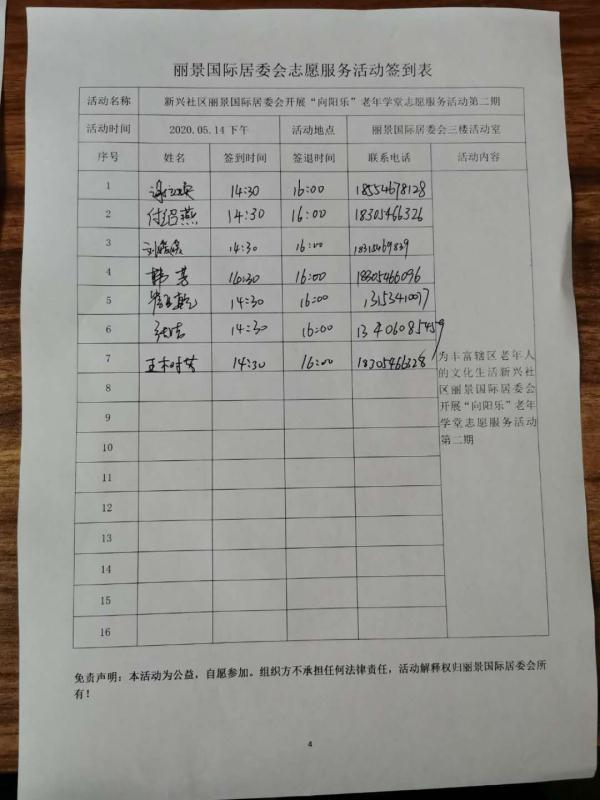 丽景国际居委会志愿服务活动签到表
活动名称 新兴社区丽景国际居委会开展“向阳乐”老年学堂志愿服务活动第二期
活动时间 2020.05.14下午 活动地点 丽景国际居委会三楼活动室
序号 姓名 签到时间 签退时间 联系电话 活动内容
1 14:30 16:00 18554678128
2 付绍燕 14:30 16:00 18305466326
3 14:30 16:00
4 韩芳 16:30 16:00 18305466096
5 14:30 16:00
6 14:30 16:00 13406085459
7 王树芳 14:30 16:00 18305466328
为丰富辖区老年人
的文化生活新兴社
区丽景国际居委会
开展“向阳乐”老年
学堂志愿服务活动
第二期
8
9
10
11
12
13
14
15
16
免责声明：本活动为公益，自愿参加。组织方不承担任何法律责任，活动解释权归丽景国际居委会所
有！
4